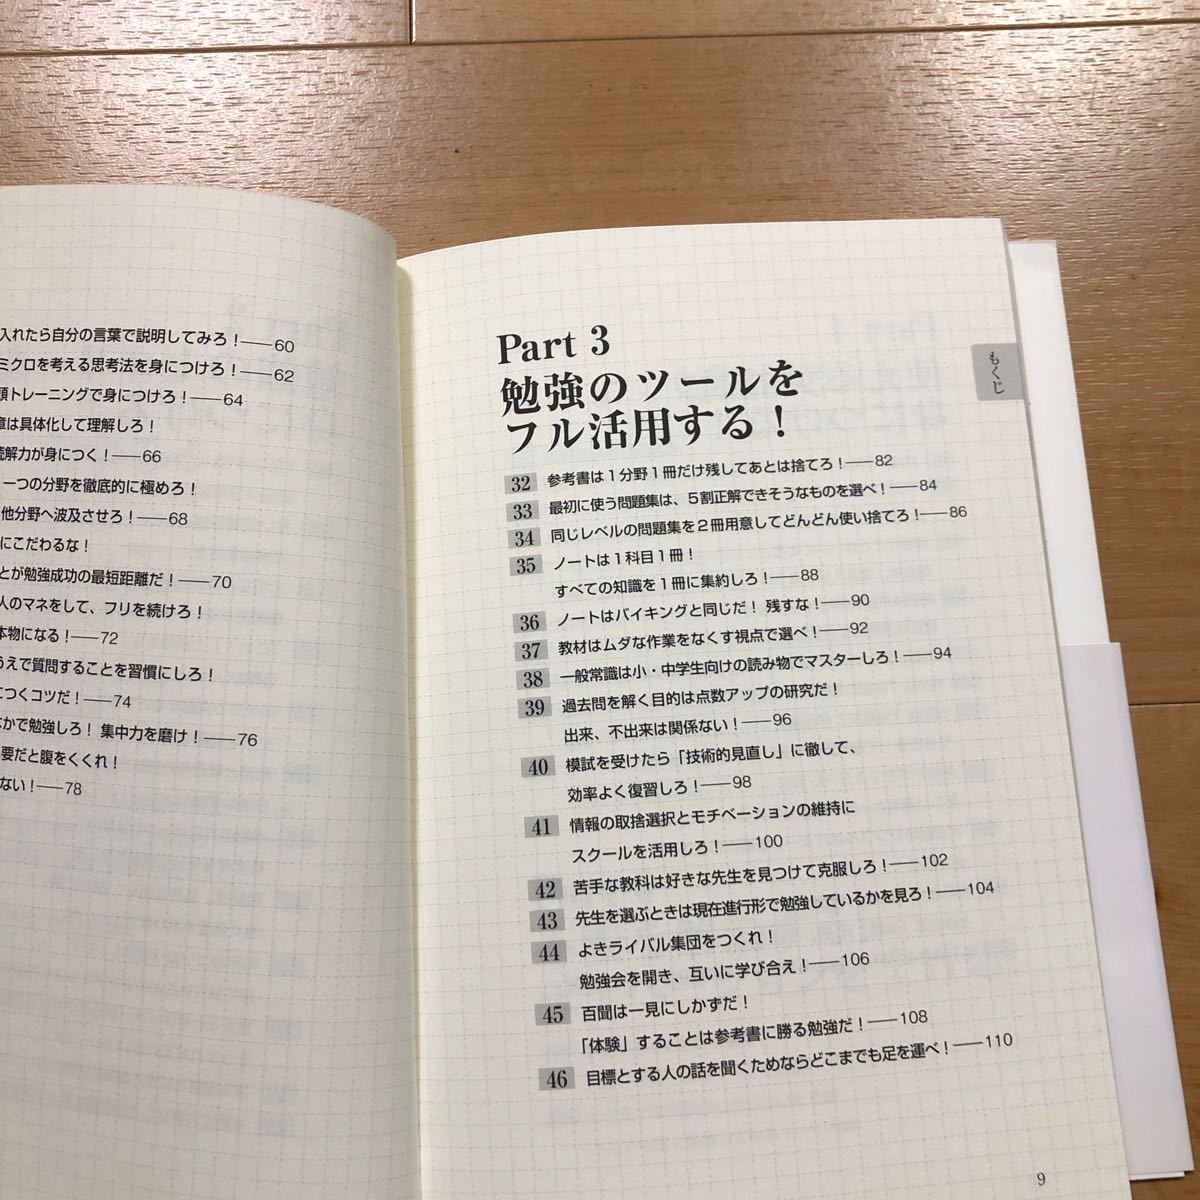 入れたら自分の言葉で説明してみろ！——60
ミクロを考える思考法を身につけろ！——62
トレーニングで身につけろ！——64
は具体化して理解しろ！
解力が身につく！——66
一つの分野を徹底的に極めろ！
他分野へ波及させろ！——68
にこだわるな！
とが勉強成功の最短距離だ！——70
人のマネをして、フリを続けろ！
本物になる！——72
うえで質問することを習慣にしろ！
につくコツだ！——74
なかで勉強しろ！ 集中力を磨け！——76
要だと腹をくくれ！
ない！——78
もくじ
Part 3
勉強のツールを
フル活用する！
32 参考書は1分野1冊だけ残してあとは捨てろ！——82
33 最初に使う問題集は、5割正解できそうなものを選べ！——84
34 同じレベルの問題集を2冊用意してどんどん使い捨てろ！——86
35 ノートは1科目1冊！
すべての知識を1冊に集約しろ！——88
36 ノートはバイキングと同じだ！ 残すな！——90
37 教材はムダな作業をなくす視点で選べ！——92
38 一般常識は小・中学生向けの読み物でマスターしろ！——94
39 過去問を解く目的は点数アップの研究だ！
出来、不出来は関係ない！——96
40 模試を受けたら「技術的見直し」に徹して、
効率よく復習しろ！——98
41 情報の取捨選択とモチベーションの維持に
スクールを活用しろ！——100
42 苦手な教科は好きな先生を見つけて克服しろ！——102
43 先生を選ぶときは現在進行形で勉強しているかを見ろ！——104
44 よきライバル集団をつくれ！
勉強会を開き、互いに学び合え！——106
45 百聞は一見にしかずだ！
「体験」することは参考書に勝る勉強だ！——108
46 目標とする人の話を聞くためならどこまでも足を運べ！——110
9